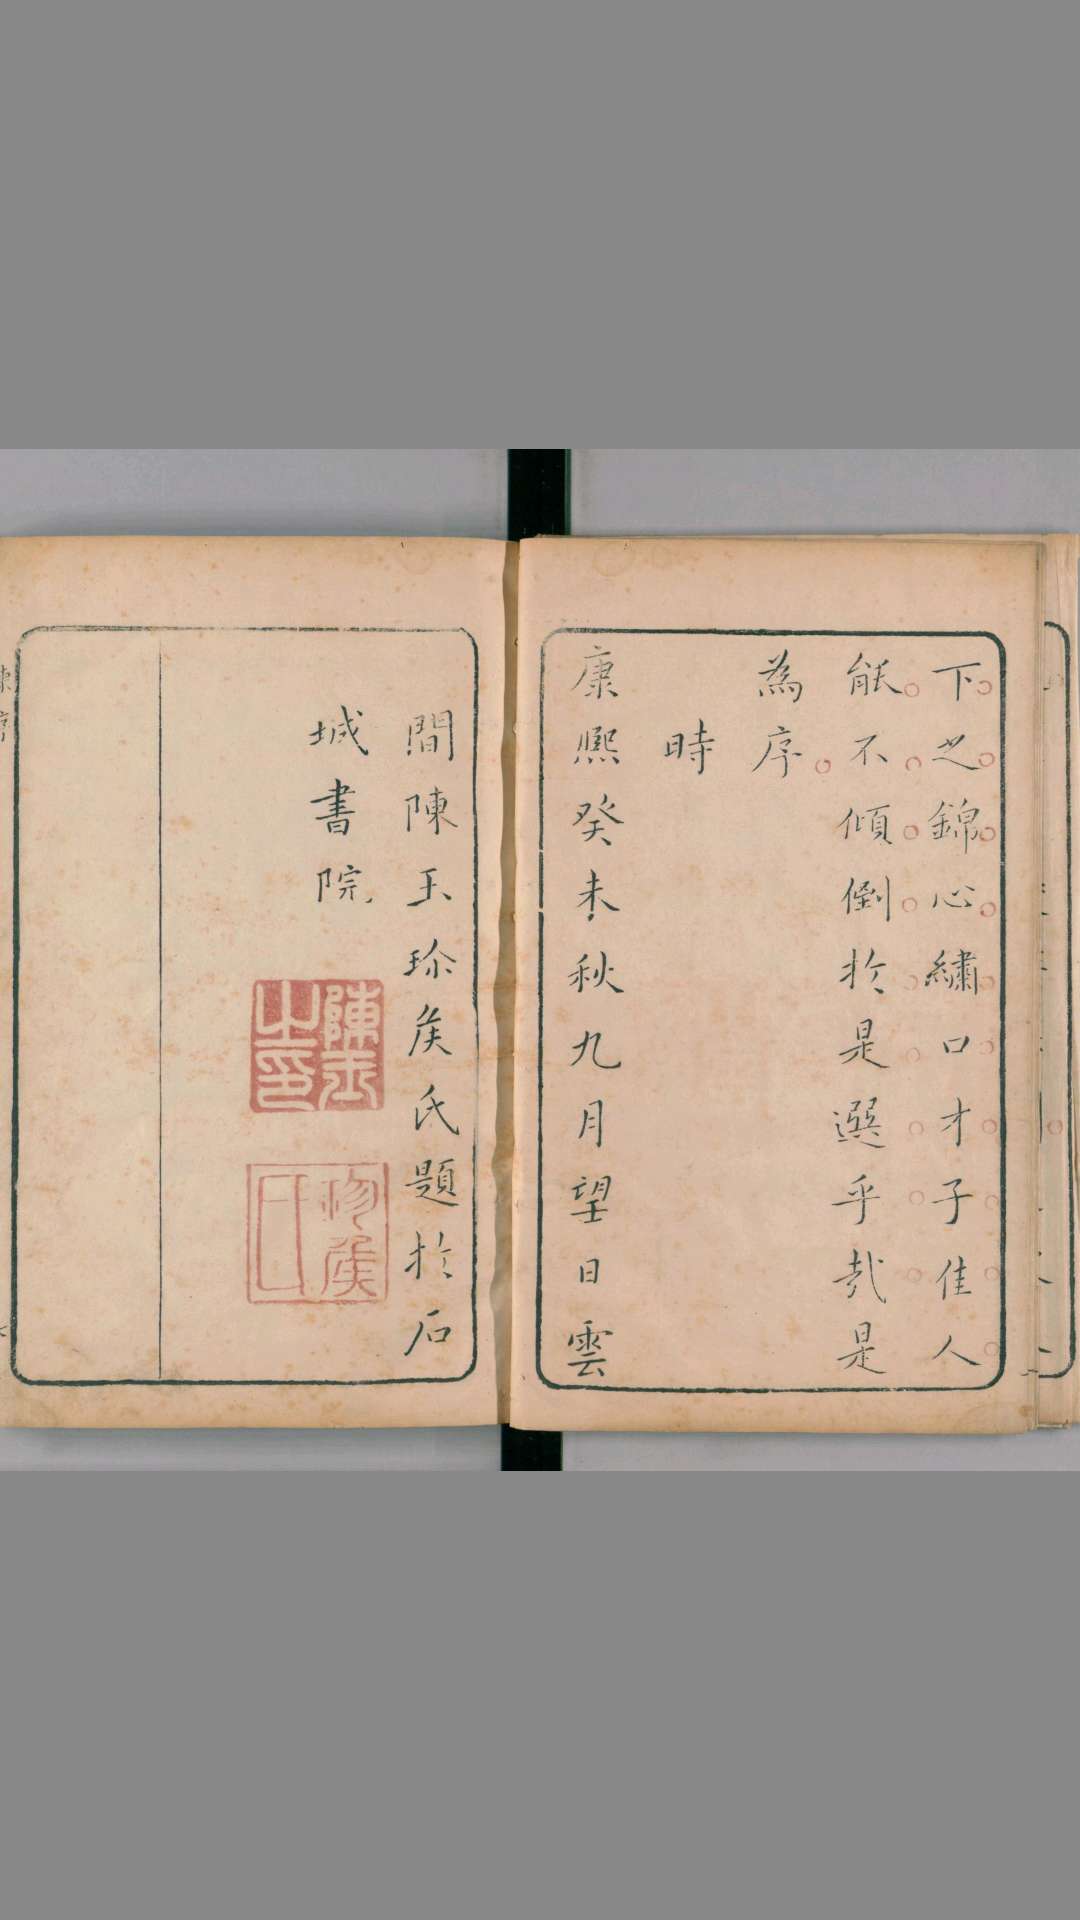 下之錦心繡口才子佳人
能不傾倒於是選乎哉是
為序
時
康熙癸未秋九月望日雲
間陳玉珍侯氏題於石
城書院
陳玉
之印
珍侯
氏
陳序